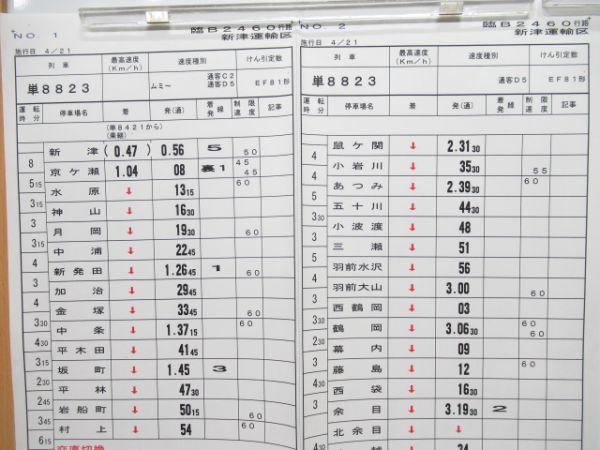 NO. 1
臨B2460行路
新津運輸区
施行日 4/21
列車 最高速度(Km/h) 速度種別 けん引定数
単8823 ムミー 通客C2 通客D5 EF81形
運転時分 停車場名 着 発(通) 着発線 制限速度 記事
(単8421から)
(乗継)
新津 (0.47) 0.56 5 50
8
京ケ瀬 1.04 08 裏1 45 45
5 15
水原 ↓ 13 15 60
3 15
神山 ↓ 16 30
3
月岡 ↓ 19 30 60
3 15
中浦 ↓ 22 45
4
新発田 ↓ 1.26 45 1 60
3
加治 ↓ 29 45
4
金塚 ↓ 33 45 60
3 30
中条 ↓ 1.37 15 60
4 30
平木田 ↓ 41 45
3 15
坂町 ↓ 1.45 3
2 45
平林 ↓ 47 30
2 30
岩船町 ↓ 50 15 60
3 45
村上 ↓ 54 60
6 15
NO. 2
臨B2460行路
新津運輸区
施行日 4/21
列車 最高速度(Km/h) 速度種別 けん引定数
単8823 通客D5 EF81形
運転時分 停車場名 着 発(通) 着発線 制限速度 記事
鼠ケ関 ↓ 2.31 30
4
小岩川 ↓ 35 30 55
4
あつみ ↓ 2.39 30 60
5
五十川 ↓ 44 30
3 30
小波渡 ↓ 48
3
三瀬 ↓ 51
5
羽前水沢 ↓ 56
4
羽前大山 ↓ 3.00 60
3
西鶴岡 ↓ 03
3 30
鶴岡 ↓ 3.06 30 60 60
2 30
幕内 ↓ 09
3
藤島 ↓ 12 60
4 30
西袋 ↓ 16 30
3
余目 ↓ 3.19 30 2
北余目 ↓ ↓